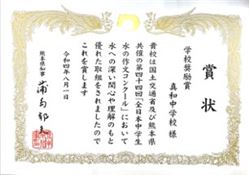 賞状
学校奨励賞
真和中学校 様
貴校は国土交通省及び熊本県
共催の第四十四回「全日本中学生
水の作文コンクール」において
水への深い関心や理解のもと
優れた取組をされましたので
これを賞します
令和四年八月一日
熊本県知事 蒲島郁夫